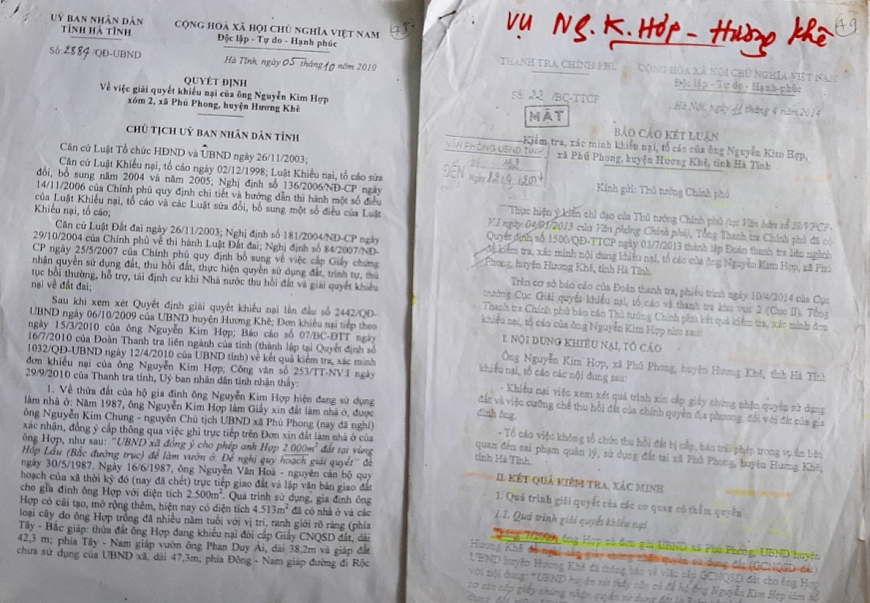 UỶ BAN NHÂN DÂN
TỈNH HÀ TĨNH
Số: 2884/QĐ-UBND
CỘNG HOÀ XÃ HỘI CHỦ NGHĨA VIỆT NAM
Độc lập - Tự do - Hạnh phúc
Hà Tĩnh, ngày 05 tháng 10 năm 2010
QUYẾT ĐỊNH
Về việc giải quyết khiếu nại của ông Nguyễn Kim Hợp
xóm 2, xã Phú Phong, huyện Hương Khê
CHỦ TỊCH UỶ BAN NHÂN DÂN TỈNH
Căn cứ Luật Tổ chức HĐND và UBND ngày 26/11/2003;
Căn cứ Luật Khiếu nại, tố cáo ngày 02/12/1998; Luật Khiếu nại, tố cáo sửa
đổi, bổ sung năm 2004 và năm 2005; Nghị định số 136/2006/NĐ-CP ngày
14/11/2006 của Chính phủ quy định chi tiết và hướng dẫn thi hành một số điều
của Luật Khiếu nại, tố cáo và các Luật sửa đổi, bổ sung một số điều của Luật
Khiếu nại, tố cáo;
Căn cứ Luật Đất đai ngày 26/11/2003; Nghị định số 181/2004/NĐ-CP ngày
29/10/2004 của Chính phủ về thi hành Luật Đất đai; Nghị định số 84/2007/NĐ-
CP ngày 25/5/2007 của Chính phủ quy định bổ sung về việc cấp Giấy chứng
nhận quyền sử dụng đất, thu hồi đất, thực hiện quyền sử dụng đất, trình tự, thủ
tục bồi thường, hỗ trợ, tái định cư khi Nhà nước thu hồi đất và giải quyết khiếu
nại về đất đai;
Sau khi xem xét Quyết định giải quyết khiếu nại lần đầu số 2442/QĐ-
UBND ngày 06/10/2009 của UBND huyện Hương Khê; Đơn khiếu nại tiếp theo
ngày 15/3/2010 của ông Nguyễn Kim Hợp; Báo cáo số 07/BC-ĐTT ngày
16/7/2010 của Đoàn Thanh tra liên ngành của tỉnh (thành lập tại Quyết định số
1032/QĐ-UBND ngày 12/4/2010 của UBND tỉnh) về kết quả kiểm tra, xác minh
đơn khiếu nại của ông Nguyễn Kim Hợp; Công văn số 253/TT-NV.I ngày
29/9/2010 của Thanh tra tỉnh, Uỷ ban nhân dân tỉnh nhận thấy:
1. Về thửa đất của hộ gia đình ông Nguyễn Kim Hợp hiện đang sử dụng
làm nhà ở: Năm 1987, ông Nguyễn Kim Hợp làm Giấy xin đất làm nhà ở, được
ông Nguyễn Kim Chung - nguyên Chủ tịch UBND xã Phú Phong (nay đã nghỉ)
xác nhận, đồng ý cấp thông qua việc ghi trực tiếp trên Đơn xin đất làm nhà ở của
ông Hợp, như sau: "UBND xã đồng ý cho phép anh Hợp 2.000m² đất tại vùng
Hóp Lầu (Bắc đường trục) để làm vườn ở. Đề nghị quy hoạch giải quyết" đề
ngày 30/5/1987. Ngày 16/6/1987, ông Nguyễn Văn Hoà - nguyên cán bộ quy
hoạch của xã thời kỳ đó (nay đã chết) trực tiếp giao đất và lập văn bản giao đất
cho gia đình ông Hợp với diện tích 2.500m². Quá trình sử dụng, gia đình ông
Hợp có cải tạo, mở rộng thêm, hiện nay có diện tích 4.513m² đã có nhà ở và các
loại cây do ông Hợp trồng đã nhiều năm tuổi với vị trí, ranh giới rõ ràng (phía
Tây - Bắc giáp: thửa đất ông Hợp đang khiếu nại đòi cấp Giấy CNQSD đất, dài
42,3 m; phía Tây - Nam giáp vườn ông Phan Duy Ái, dài 38,2m và giáp đất
chưa sử dụng của UBND xã, dài 47,3m; phía Đông - Nam giáp đường đi Rộc
VỤ NG. K. HỢP - Hương Khê
49
THANH TRA CHÍNH PHỦ
CỘNG HOÀ XÃ HỘI CHỦ NGHĨA VIỆT NAM
Độc lập - Tự do - Hạnh phúc
Số: 22 /BC-TTCP
Hà Nội, ngày 11 tháng 4 năm 2014
MẬT
VĂN PHÒNG UBND TỈNH
ĐẾN
BÁO CÁO KẾT LUẬN
Kiểm tra, xác minh khiếu nại, tố cáo của ông Nguyễn Kim Hợp,
xã Phú Phong, huyện Hương Khê, tỉnh Hà Tĩnh
Kính gửi: Thủ tướng Chính phủ
Thực hiện ý kiến chỉ đạo của Thủ tướng Chính phủ
ngày 04/01/2013 của Văn phòng Chính phủ), Tổng Thanh tra Chính phủ đã có
Quyết định số 1500/QĐ-TTCP ngày 03/7/2013 thành lập Đoàn thanh tra liên ngành
để kiểm tra, xác minh nội dung khiếu nại, tố cáo của ông Nguyễn Kim Hợp, xã Phú
Phong, huyện Hương Khê, tỉnh Hà Tĩnh.
Trên cơ sở báo cáo của Đoàn thanh tra, phiếu trình ngày 10/4/2014 của Cục
trưởng Cục Giải quyết khiếu nại, tố cáo và thanh tra khu vực 2 (Cục II), Tổng
Thanh tra Chính phủ báo cáo Thủ tướng Chính phủ kết quả kiểm tra, xác minh đơn
khiếu nại, tố cáo của ông Nguyễn Kim Hợp như sau:
I. NỘI DUNG KHIẾU NẠI, TỐ CÁO
Ông Nguyễn Kim Hợp, xã Phú Phong, huyện Hương Khê, tỉnh Hà Tĩnh
khiếu nại, tố cáo các nội dung sau:
- Khiếu nại việc xem xét quá trình xin cấp giấy chứng nhận quyền sử dụng
đất và việc cưỡng chế thu hồi đất của chính quyền địa phương, đối với đất của gia
đình ông.
- Tố cáo việc không tổ chức thu hồi đất bị cấp, bán trái phép trong vụ án liên
quan đến sai phạm quản lý, sử dụng đất tại xã Phú Phong, huyện Hương Khê,
tỉnh Hà Tĩnh.
II. KẾT QUẢ KIỂM TRA, XÁC MINH
1. Quá trình giải quyết của các cơ quan có thẩm quyền
1.1. Quá trình giải quyết khiếu nại
ông Hợp có đơn gửi UBND xã Phú Phong, UBND huyện
Hương Khê đề nghị cấp giấy chứng nhận quyền sử dụng đất (GCNQSD đất)
UBND huyện Hương Khê đã thông báo về việc cấp GCNQSD đất cho ông Hợp
với nội dung: